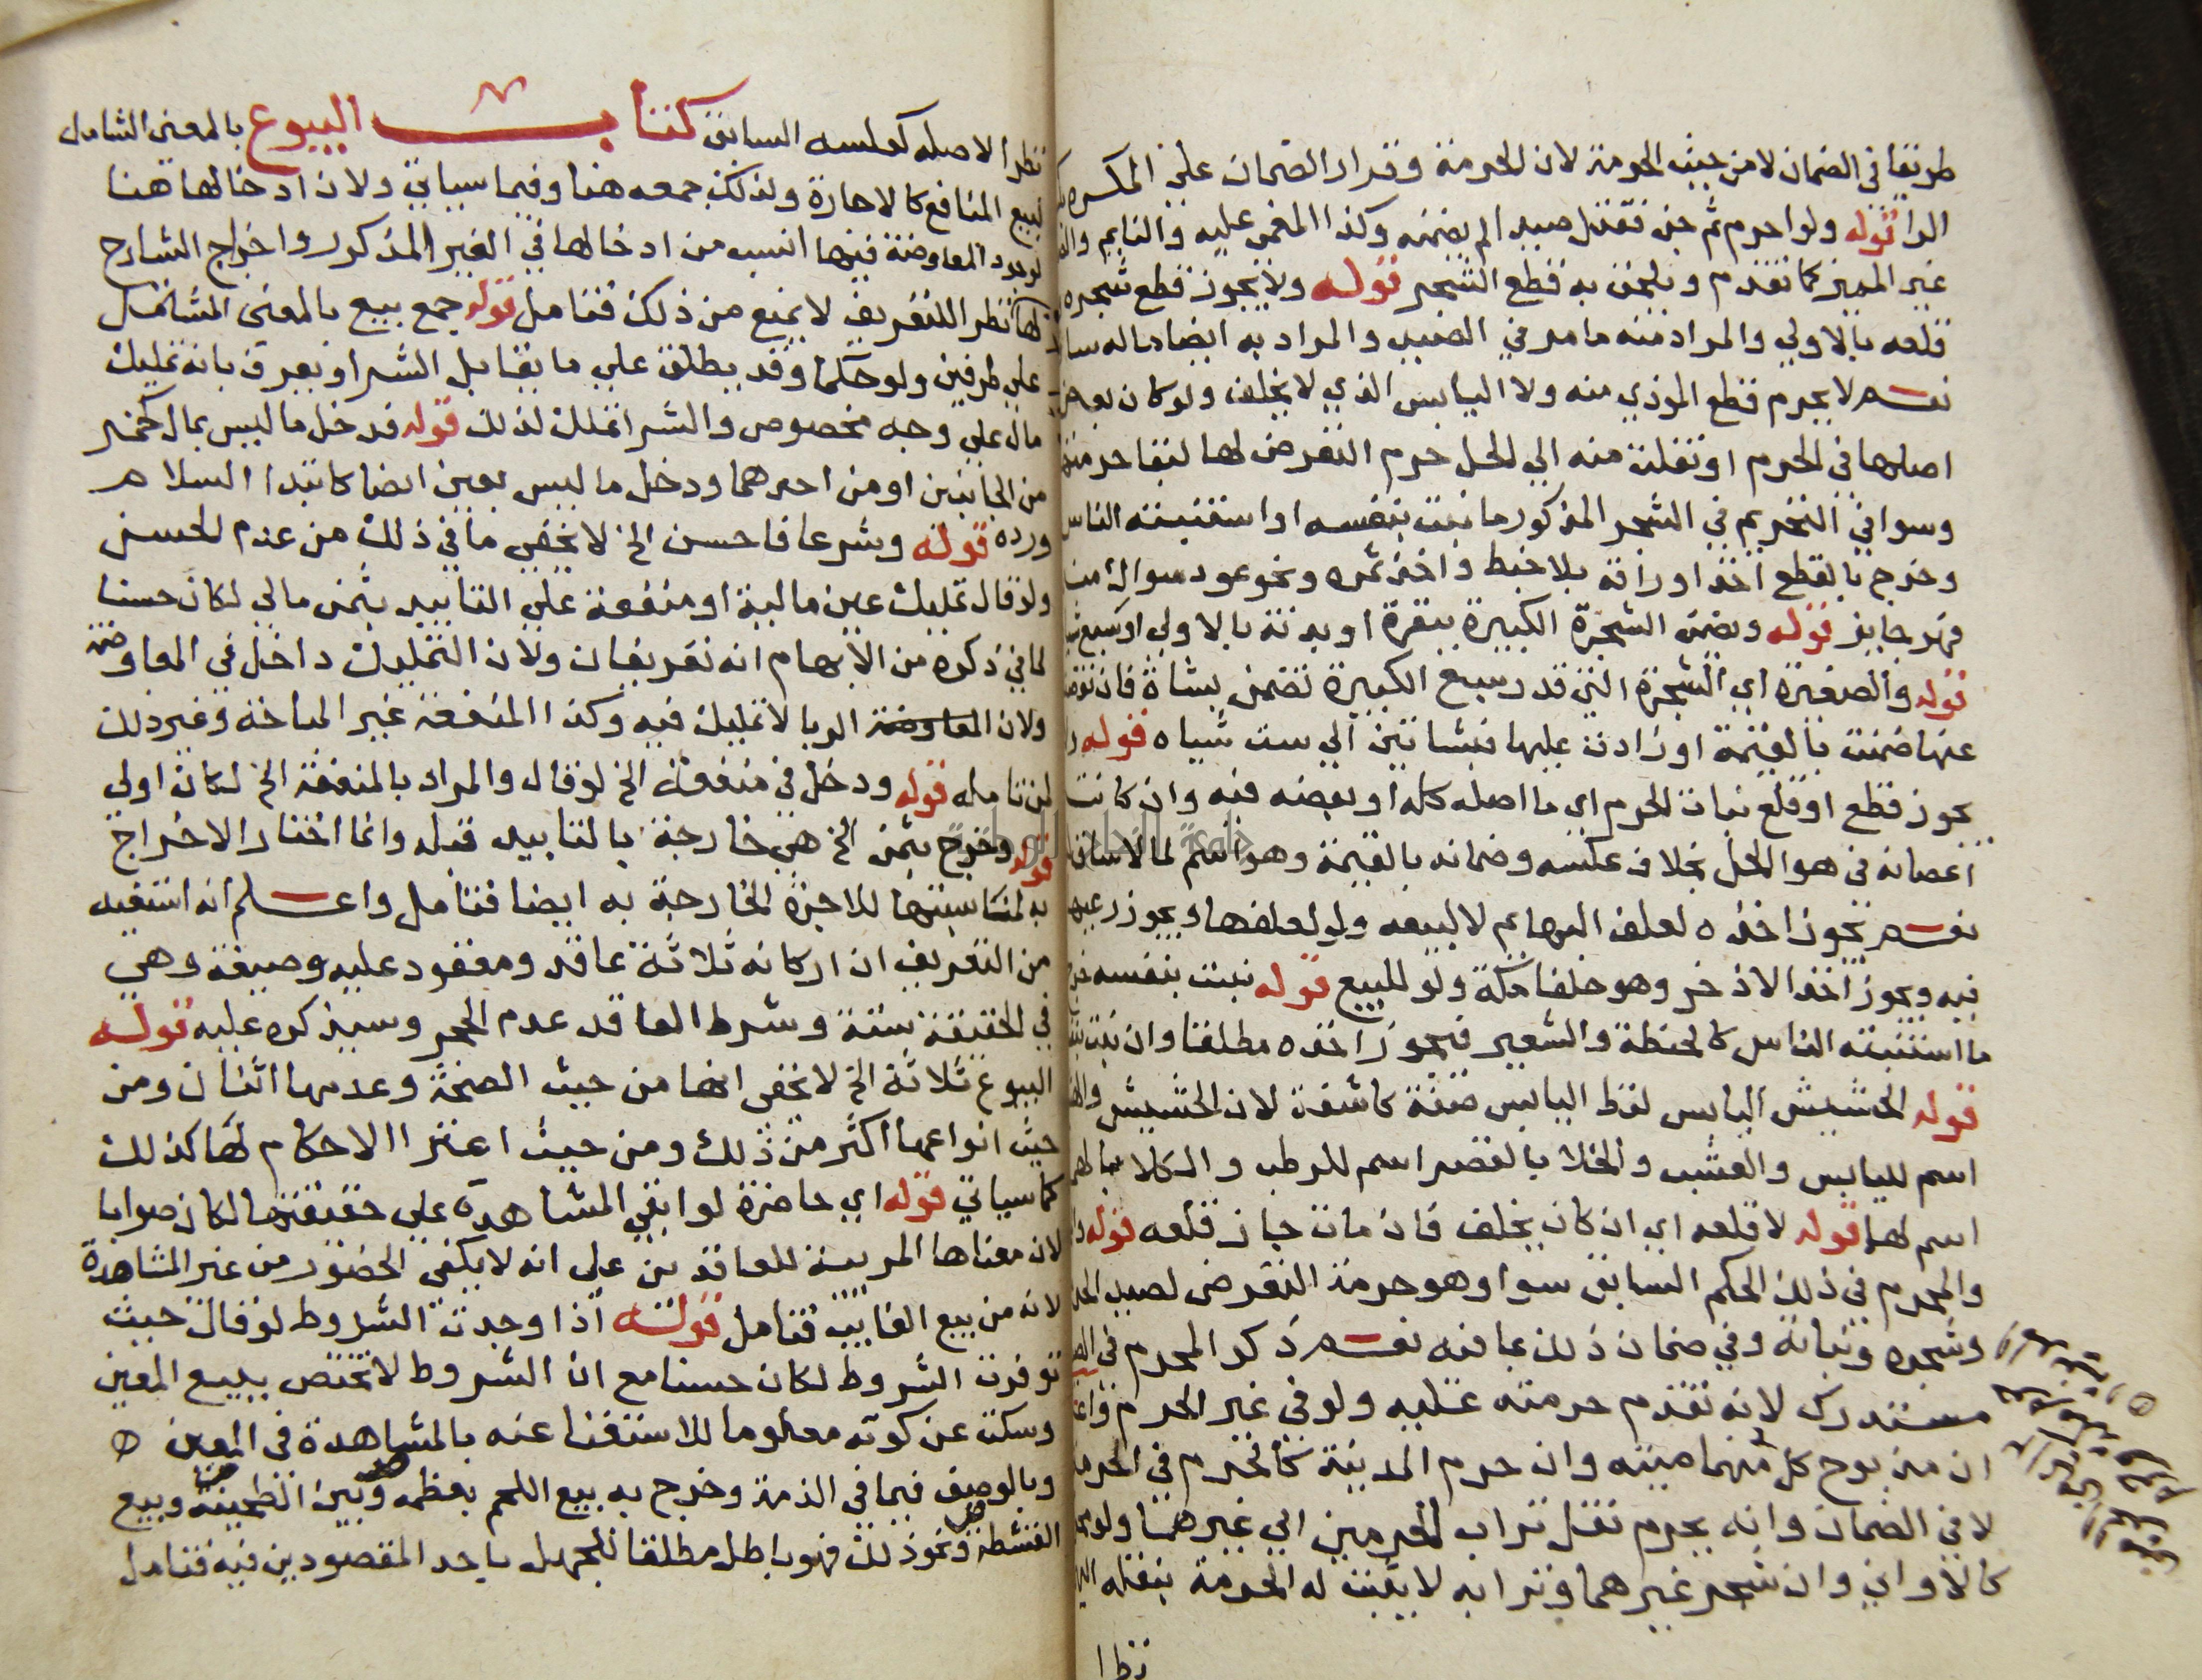 طريقا في الضمان لا من حيث الحرمة لان الحرمة وقرار الضمان علي المكره
الرا قوله ولو احرم ثم جن فقتل صيدا لم يضمنه وكذا المغمي عليه والنايم
غير المميز كما تقدم ويلحق به قطع الشجر قوله ولا يجوز قطع شجره
قلعه بالاولي والمراد منه ما مر في الصيد والمراد به ايضا ماله ساق
نعم لا يحرم قطع الموذي منه ولا اليابس الذي لا يخلف ولو كان بعض
اصلها في الحرم او نقلت منه الي الحل حرم التعرض لها لبقا حرمتها
وسوا في التحريم في الشجر المذكور ما نبت بنفسه او استنبته الناس
وخرج بالقطع اخذ اوراقه بلا خبط واخذ ثمره ونحو عود سواك منه
فهو جايز قوله ويضمن الشجرة الكبيرة ببقرة او بدنة بالاولي او سبع
قوله والصغيرة اي الشجرة التي قدر سبع الكبيرة تضمن بشاة فان نقصت
عنها ضمنت بالقيمة او زادت عليها فبشاتين الي ست شياه قوله
يجوز قطع او قلع نبات الحرم اي ما اصله كله او بعضه فيه وان كانت
اغصانه في هوا الحل بخلاف عكسه وضمانه بالقيمة وهو اسم لما لا ساق
نعم يجوز اخذه لعلف البهايم لا لبيعه ولو لعلفها ويجوز رعيها
فيه ويجوز اخذ الاذخر وهو حلفا مكة ولو للبيع قوله نبت بنفسه
ما استنبته الناس كالحنطة والشعير فيجوز اخذه مطلقا وان نبت
قوله الحشيش اليابس لفظ اليابس صفة كاشفة لان الحشيش
اسم لليابس والعشب والخلا بالقصر اسم للرطب والكلا
اسم لهما قوله لا قلعه اي ان كان يخلف فان مات جاز قلعه قوله
والمحرم في ذلك الحكم السابق سوا وهو حرمة التعرض لصيد الحرم
وشجره ونباته وفي ضمان ذلك بما فيه نعم ذكر المحرم في
مستدرك لانه تقدم حرمته عليه ولو في غير الحرم
ان مذبوح كل منهما ميتة وان حرم المدينة كالحرم في الحرمة
لا في الضمان وانه يحرم نقل تراب الحرمين الي غيرهما ولو
كالاواني وان شجر غيرهما وترابه لا يثبت له الحرمة بنقله
نظرا
نظرا لاصله كعكسه السابق كتاب البيوع بالمعني الشامل
لبيع المنافع كالاجارة ولذلك جمعه هنا وفيما سياتي ولان ادخالها هنا
لوجود المعاوضة فيها انسب من ادخالها في الغير المذكور واخراج الشارح
لها نظرا للتعريف لا يمنع من ذلك فتامل قوله جمع بيع بالمعني المشتمل
علي طرفين ولو حكما وقد يطلق علي ما يقابل الشرا ويعرف بانه تمليك
مال علي وجه مخصوص والشرا تملك لذلك قوله فدخل ما ليس بمال كخمر
من الجانبين او من احدهما ودخل ما ليس بعين ايضا كابتدا السلام
ورده قوله وشرعا فاحسن الخ لا يخفي ما في ذلك من عدم الحسن
ولو قال تمليك عين مالية او منفعة علي التابيد بثمن مالي لكان حسنا
لما في ذكره من الايهام انه تعريفان ولان التمليك داخل في المعاوضة
ولان المعاوضة الربا لا تمليك فيه وكذا المنفعة غير المباحة وغير ذلك
لمن تامله قوله ودخل في منفعة الخ لو قال والمراد بالمنفعة الخ لكان اولي
قوله وخرج بثمن الخ هي خارجة بالتابيد قبله وانما اختار الاخراج
به لمناسبتها للاجرة الخارجة به ايضا فتامل واعلم انه استفيد
من التعريف ان اركانه ثلاثة عاقد ومعقود عليه وصيغة وهي
في الحقيقة ستة وشرط العاقد عدم الحجر وسيذكره عليه قوله
البيوع ثلاثة الخ لا يخفي انها من حيث الصحة وعدمها اثنان ومن
حيث انواعها اكثر من ذلك ومن حيث اعتبرا الاحكام لها كذلك
كما سياتي قوله اي حاضرة لو ابقي المشاهدة علي حقيقتها لكان صوابا
لان معناها المريية للعاقدين علي انه لا يكفي الحضور من غير المشاهدة
لانه من بيع الغايب فتامل قوله اذا وجدت الشروط لو قال حيث
توفرت الشروط لكان حسنا مع ان الشروط لا تختص ببيع المعين
وسكت عن كونه معلوما للاستغنا عنه بالمشاهدة في المعين
وبالوصف فيما في الذمة وخرج به بيع اللحم بعظمه وبين الطحينة وبيع
القشطة ونحو ذلك فهو باطل مطلقا للجهل باحد المقصودين فيه فتامل